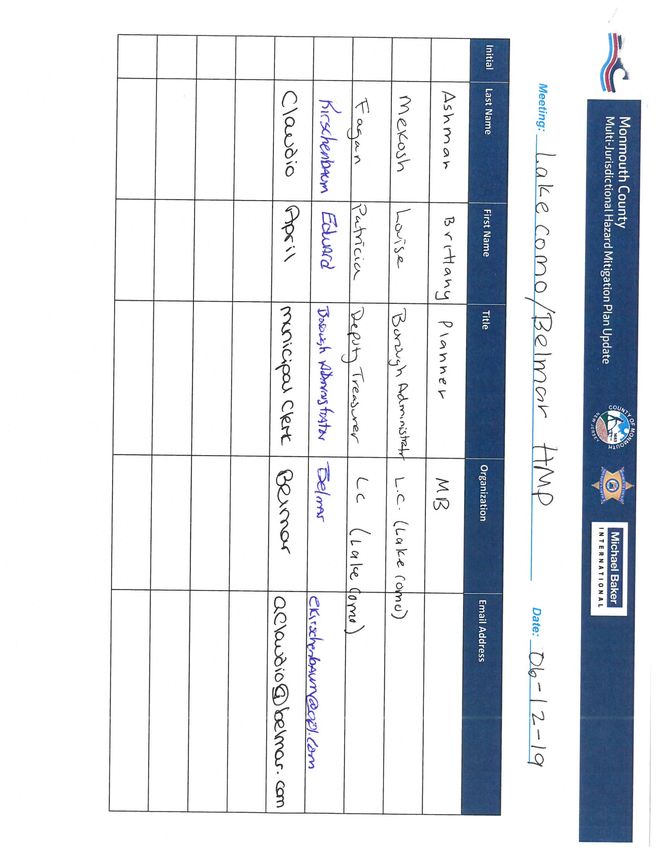 Monmouth County
Multi-Jurisdictional Hazard Mitigation Plan Update
COUNTY OF MONMOUTH
NEW JERSEY
Michael Baker
INTERNATIONAL
Meeting: Lake Como/Belmar HMP Date: 06-12-19
Initial Last Name First Name Title Organization Email Address
Ashman Brittany Planner MB
Mekosh Louise Borough Administratr L.C. (Lake Como)
Fagan Patricia Deputy Treasurer LC (Lake Como)
Kirschenbaum Edward Borough Administrator Belmar
Claudio April Municipal Clerk Belmar aclaudio@belmar.com